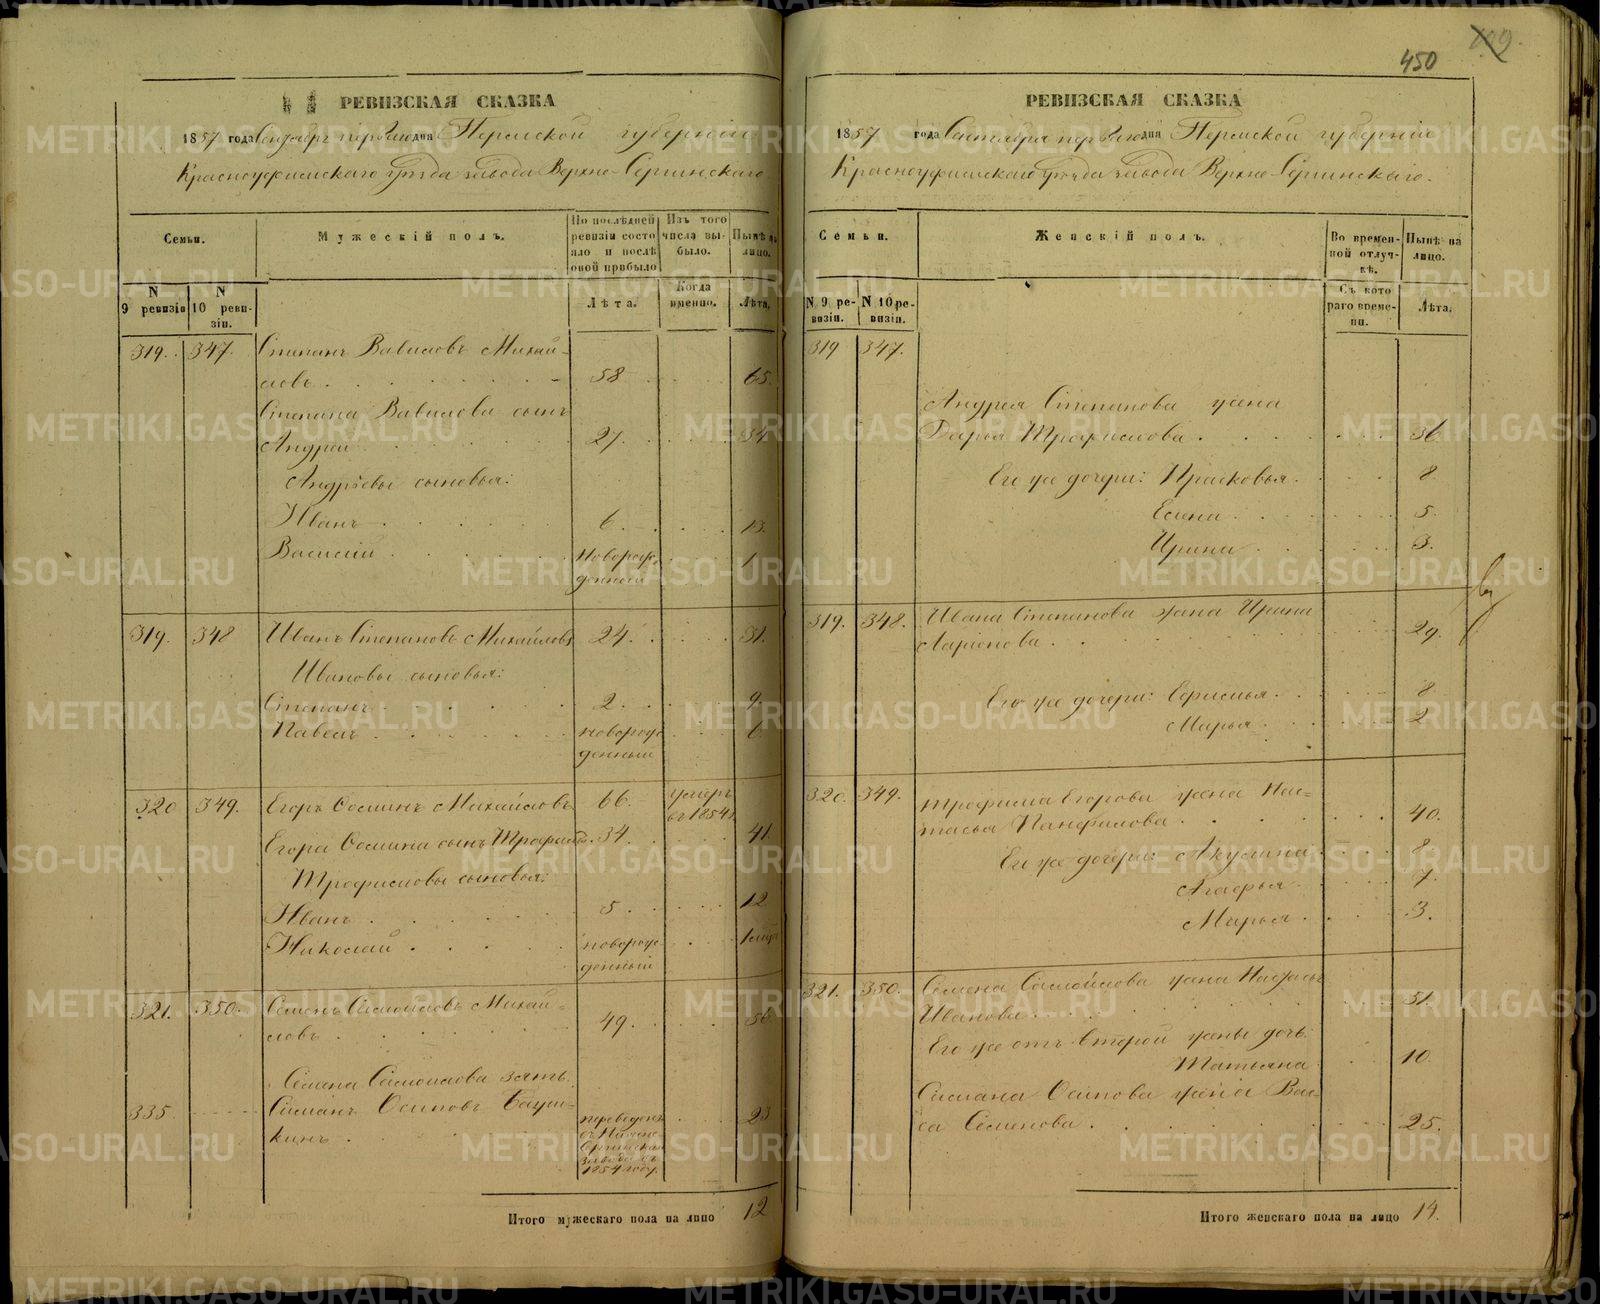 450
РЕВИЗСКАЯ СКАЗКА
1857 года Сентября первого дня Пермской губерніи
Красноуфимскаго уѣзда завода Верхне-Сергинскаго
Семьи.
Мужескій полъ.
По послѣдней ревизіи состояло и послѣ оной прибыло
Изъ того числа выбыло.
Нынѣ на лицо.
N 9 ревизіи
N 10 ревизіи.
Лѣта.
Когда именно.
Лѣта.
319. 347. Степанъ Вавиловъ Михай-
ловъ 58 65.
Степана Вавилова сынъ
Андрей 27. 34
Андрѣевы сыновья:
Иванъ 6. 13.
Василій новорож-
денный 1
319. 348 Иванъ Степановъ Михайловъ 24. 31.
Ивановы сыновья:
Степанъ 2. 9.
Павелъ новорож-
денный 6
320 349. Егоръ Ѳоминъ Михайловъ 66. умеръ
въ 1854
Егора Ѳомина сынъ Трофимъ 34. 41.
Трофимовы сыновья:
Иванъ 5. 12
Николай новорож-
денный
321. 350. Семенъ Самойловъ Михай-
ловъ 49. 56
Семена Самойлова зять
335. Симанъ Осиповъ 23
кинъ переведенъ
1854 году.
Итого мужескаго пола на лицо 12
РЕВИЗСКАЯ СКАЗКА
1857 года Сентября первого дня Пермской губерніи
Красноуфимскаго уѣзда завода Верхне-Сергинскаго.
Семьи.
Женскій полъ.
Во временной отлучкѣ.
Нынѣ на лицо.
N 9 ревизіи.
N 10 ревизіи.
Съ котораго времени.
Лѣта.
319 347.
Андрея Степанова жена
Дарья Трофимова 36.
Его же дочери: Прасковья. 8
Елена 5.
Ирина 3.
319. 348. Ивана Степанова жена Ирина
Ларіонова 29.
Его же дочери: Ефимья 8
Марья 2.
320. 349. Трофима Егорова жена Нас-
тасья Панфилова 40.
Его же дочери: Акулина 8.
Агафья 7.
Марья 3.
321. 350. Семена Самойлова жена
Иванова 51.
Его же отъ второй жены дочь
Татьяна 10.
Симана Осипова жена Вас-
са Семенова 25.
Итого женскаго пола на лицо 14.
METRIKI.GASO-URAL.RU